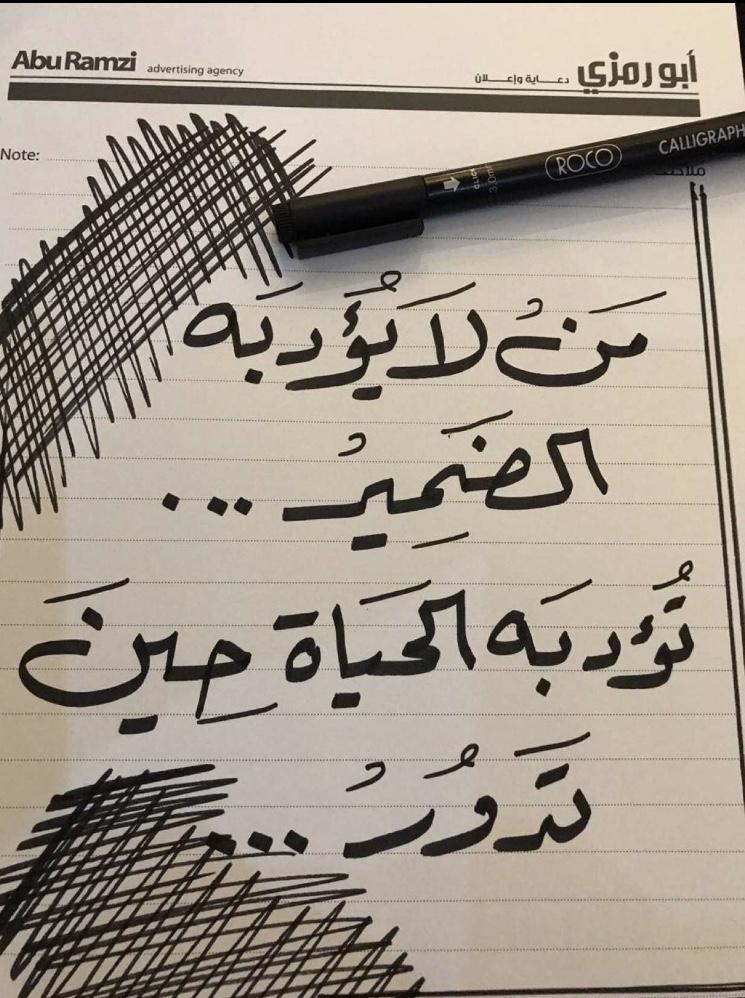 Abu Ramzi advertising agency أبو رمزي دعــاية وإعــلان
Note:
ROCO CALLIGRAPH
3.0m
مَنْ لَا يُؤدبَه
الضَمِيرُ ...
تُؤدبَه الحَيَاة حِينَ
تَدورُ ...